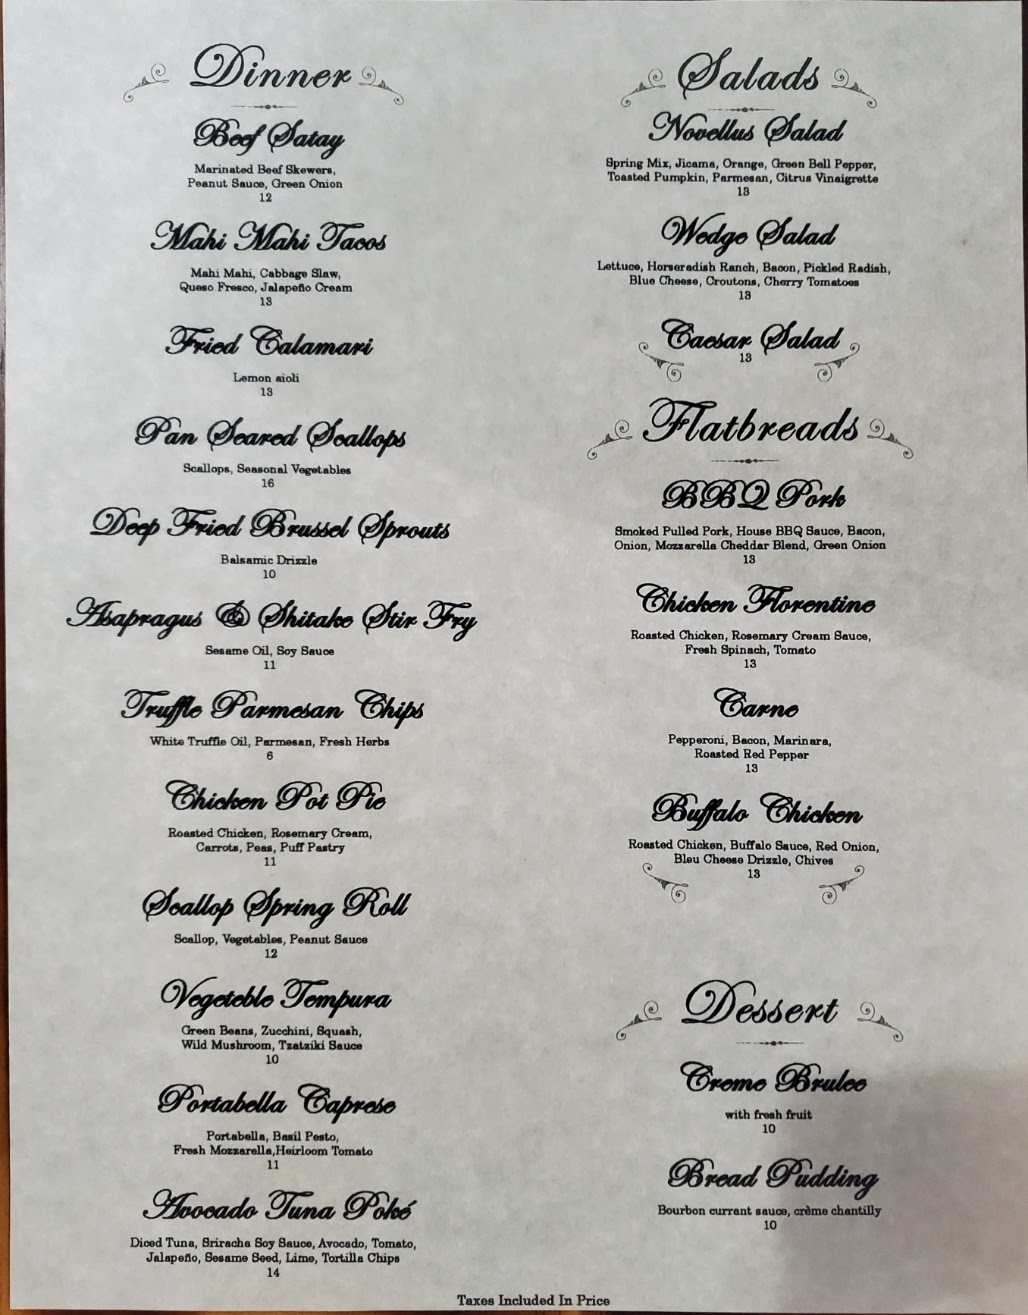 Dinner
Beef Satay
Marinated Beef Skewers,
Peanut Sauce, Green Onion
12
Mahi Mahi Tacos
Mahi Mahi, Cabbage Slaw,
Queso Fresco, Jalapeño Cream
13
Fried Calamari
Lemon aioli
13
Pan Seared Scallops
Scallops, Seasonal Vegetables
16
Deep Fried Brussel Sprouts
Balsamic Drizzle
10
Asapragus & Shitake Stir Fry
Sesame Oil, Soy Sauce
11
Truffle Parmesan Chips
White Truffle Oil, Parmesan, Fresh Herbs
6
Chicken Pot Pie
Roasted Chicken, Rosemary Cream,
Carrots, Peas, Puff Pastry
11
Scallop Spring Roll
Scallop, Vegetables, Peanut Sauce
12
Vegeteble Tempura
Green Beans, Zucchini, Squash,
Wild Mushroom, Tzatziki Sauce
10
Portabella Caprese
Portabella, Basil Pesto,
Fresh Mozzarella,Heirloom Tomato
11
Avocado Tuna Poké
Diced Tuna, Sriracha Soy Sauce, Avocado, Tomato,
Jalapeño, Sesame Seed, Lime, Tortilla Chips
14
Salads
Novellus Salad
Spring Mix, Jicama, Orange, Green Bell Pepper,
Toasted Pumpkin, Parmesan, Citrus Vinaigrette
13
Wedge Salad
Lettuce, Horseradish Ranch, Bacon, Pickled Radish,
Blue Cheese, Croutons, Cherry Tomatoes
13
Caesar Salad
13
Flatbreads
BBQ Pork
Smoked Pulled Pork, House BBQ Sauce, Bacon,
Onion, Mozzarella Cheddar Blend, Green Onion
13
Chicken Florentine
Roasted Chicken, Rosemary Cream Sauce,
Fresh Spinach, Tomato
13
Carne
Pepperoni, Bacon, Marinara,
Roasted Red Pepper
13
Buffalo Chicken
Roasted Chicken, Buffalo Sauce, Red Onion,
Bleu Cheese Drizzle, Chives
13
Dessert
Creme Brulee
with fresh fruit
10
Bread Pudding
Bourbon currant sauce, crème chantilly
10
Taxes Included In Price